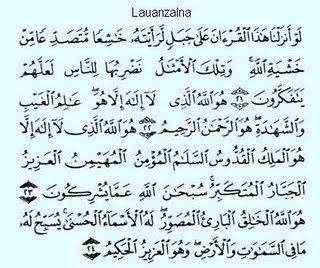 Lauanzalna
لَوْ أَنزَلْنَا هَٰذَا ٱلْقُرْءَانَ عَلَىٰ جَبَلٍ لَّرَأَيْتَهُۥ خَٰشِعًا مُّتَصَدِّعًا مِّنْ
خَشْيَةِ ٱللَّهِ ۚ وَتِلْكَ ٱلْأَمْثَٰلُ نَضْرِبُهَا لِلنَّاسِ لَعَلَّهُمْ
يَتَفَكَّرُونَ ٢١ هُوَ ٱللَّهُ ٱلَّذِى لَآ إِلَٰهَ إِلَّا هُوَ ۖ عَٰلِمُ ٱلْغَيْبِ
وَٱلشَّهَٰدَةِ ۖ هُوَ ٱلرَّحْمَٰنُ ٱلرَّحِيمُ ٢٢ هُوَ ٱللَّهُ ٱلَّذِى لَآ إِلَٰهَ إِلَّا
هُوَ ٱلْمَلِكُ ٱلْقُدُّوسُ ٱلسَّلَٰمُ ٱلْمُؤْمِنُ ٱلْمُهَيْمِنُ ٱلْعَزِيزُ
ٱلْجَبَّارُ ٱلْمُتَكَبِّرُ ۚ سُبْحَٰنَ ٱللَّهِ عَمَّا يُشْرِكُونَ ٢٣
هُوَ ٱللَّهُ ٱلْخَٰلِقُ ٱلْبَارِئُ ٱلْمُصَوِّرُ ۖ لَهُ ٱلْأَسْمَآءُ ٱلْحُسْنَىٰ ۚ يُسَبِّحُ لَهُۥ
مَا فِى ٱلسَّمَٰوَٰتِ وَٱلْأَرْضِ ۖ وَهُوَ ٱلْعَزِيزُ ٱلْحَكِيمُ ٢٤